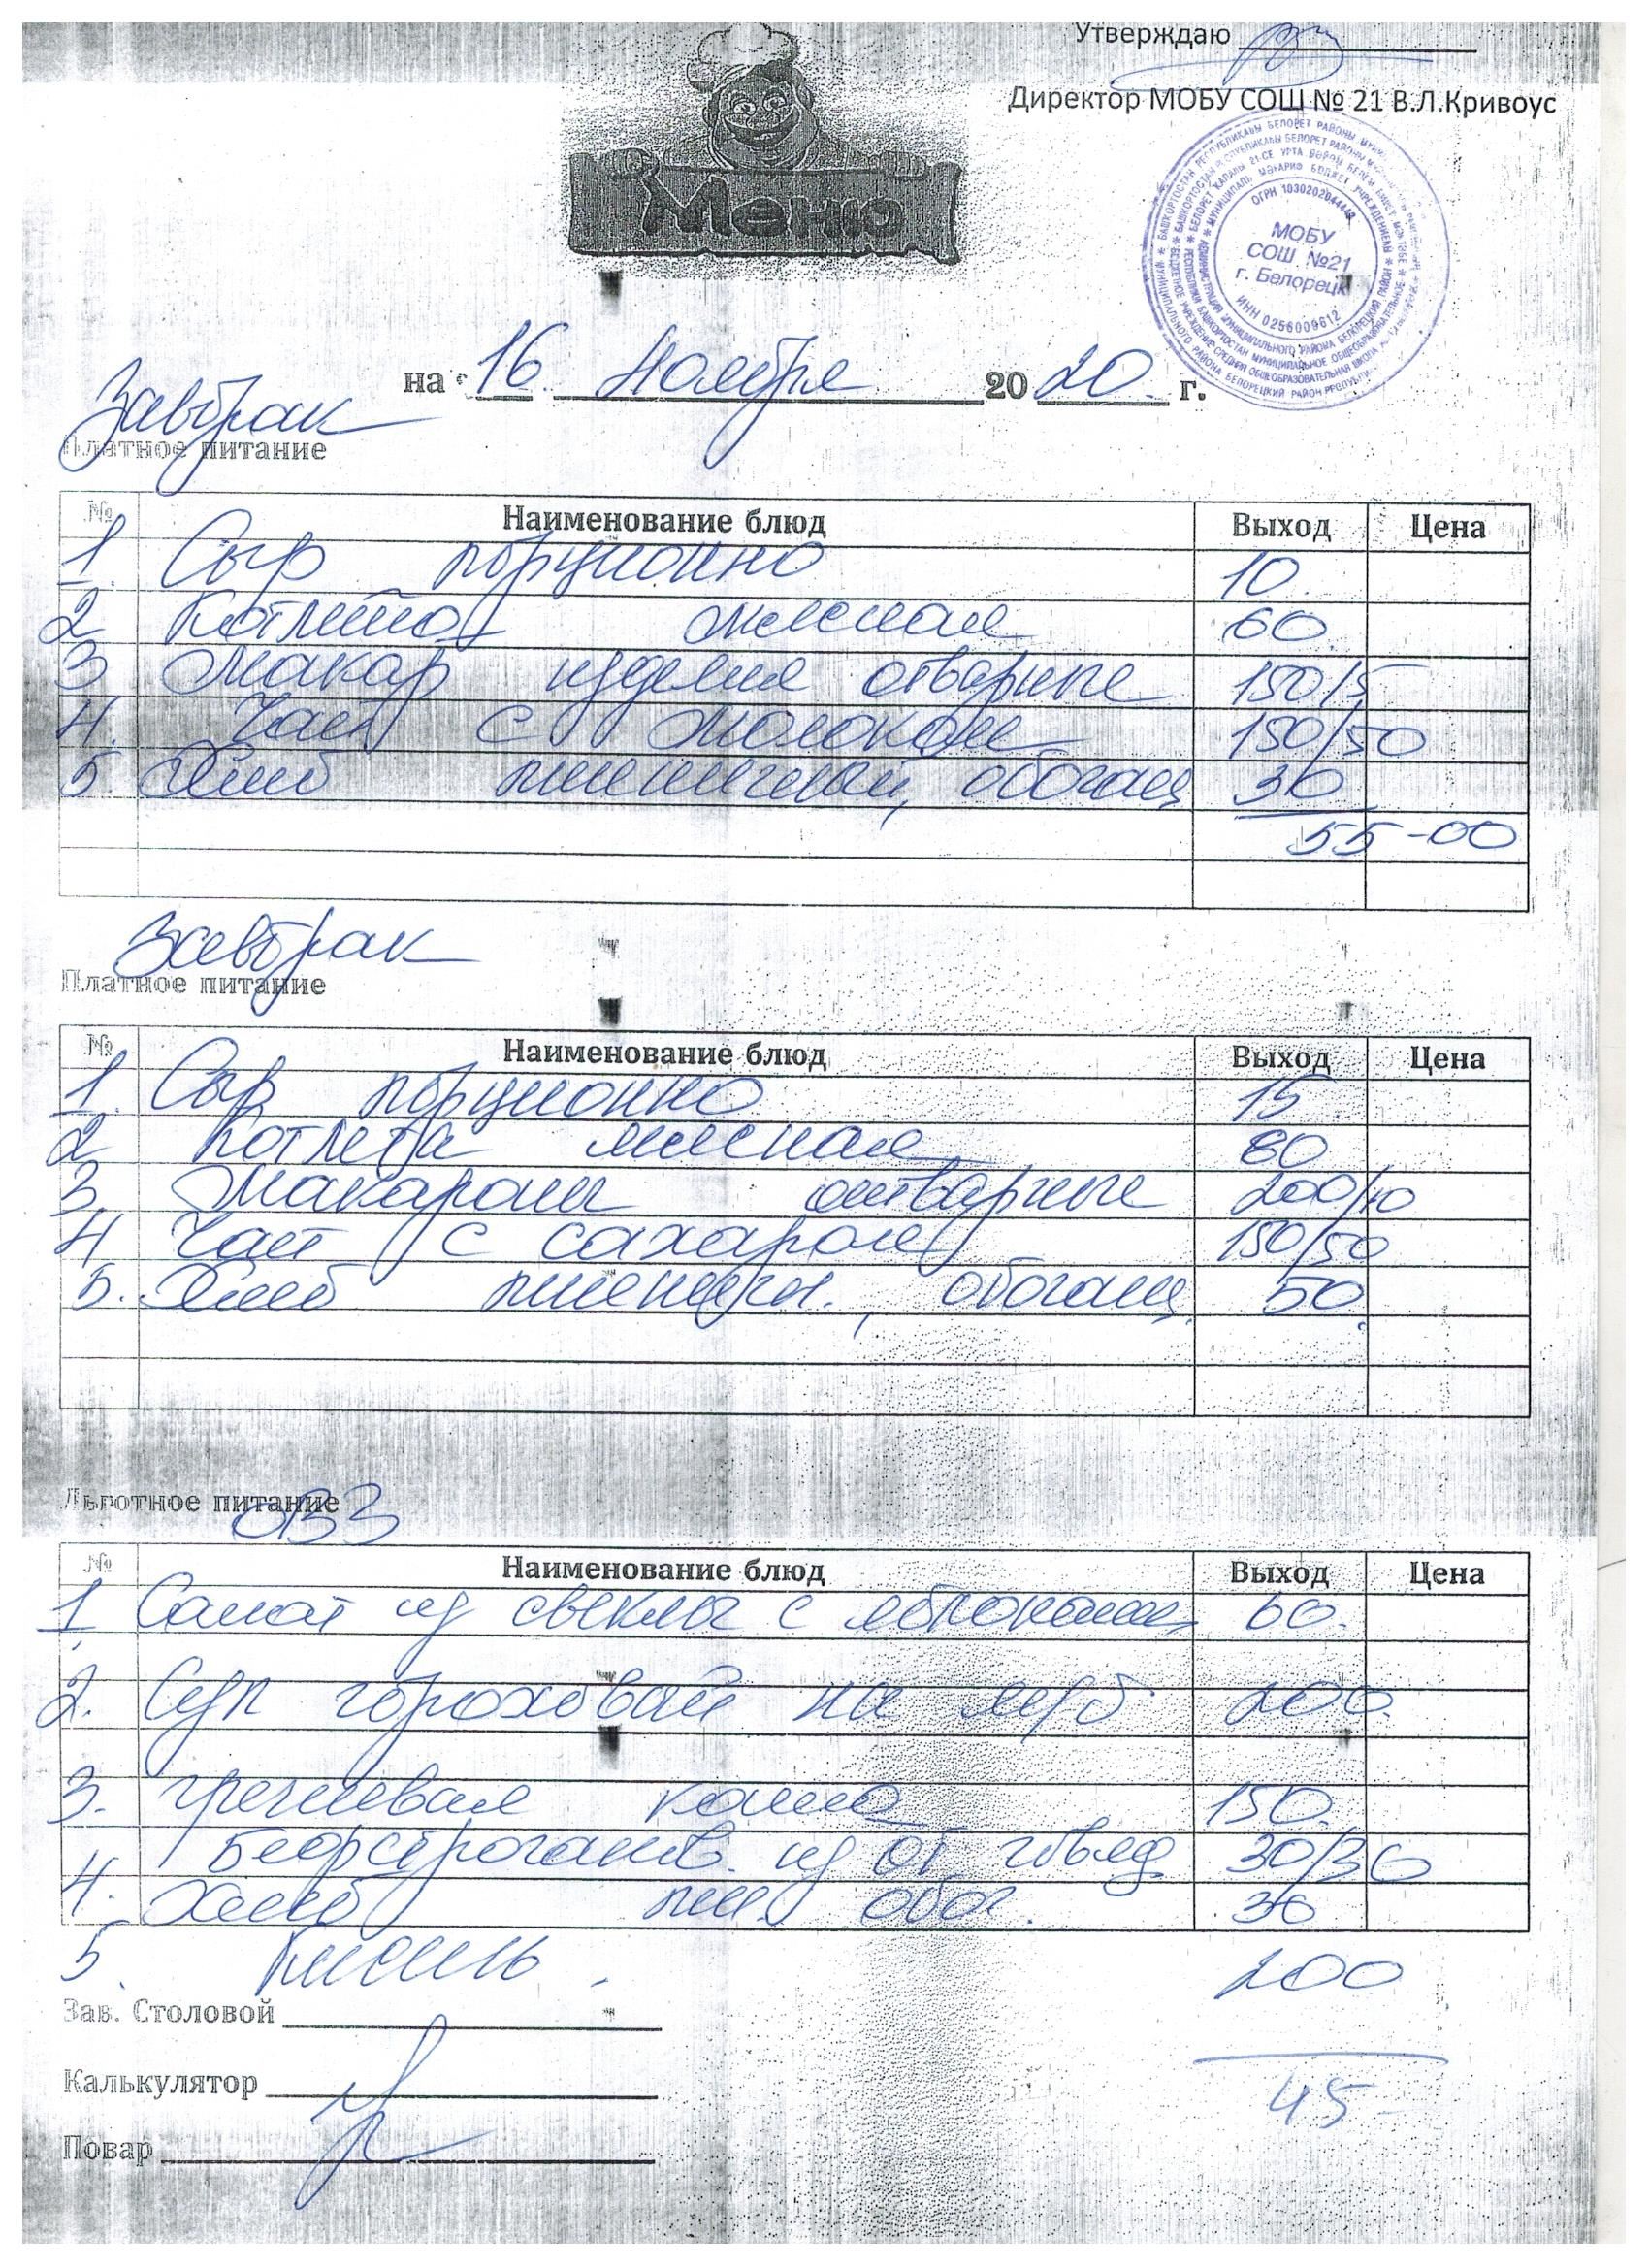 Утверждаю
Директор МОБУ СОШ № 21 В.Л.Кривоус
Меню
ОГРН 1030202044448
МОБУ
СОШ №21
г. Белорецк
ИНН 0256009612
на 16. ноября 2020. г.
Завтрак
Платное питание
№ Наименование блюд Выход Цена
1. Сыр порционно 10
2 Котлета мясная 60
3 Макар изделия отварные 150/5
4. Чай с молоком 150/50
5. Хлеб пшеничный, обогащ 30
55-00
Завтрак
Платное питание
№ Наименование блюд Выход Цена
1. Сыр порционно 15
2 Котлета мясная 80
3 Макароны отварные 200/10
4 Чай с сахаром 150/50
5. Хлеб пшеничн., обогащ. 50
Льготное питание
ОВЗ
№ Наименование блюд Выход Цена
1 Салат из свеклы с яблоками 60.
2. Суп гороховый на м/б 200
3. гречневая каша 150.
Бефстроганов. из от. говяд 30/30
4. Хлеб пш. обог. 30
5. Кисель. 200
Зав. Столовой
45-
Калькулятор
Повар